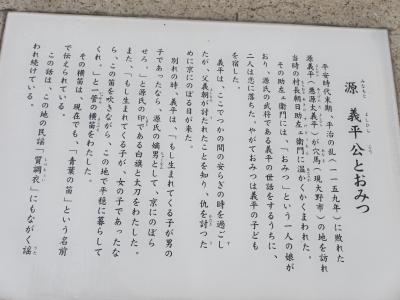 源 義平公とおみつ
みなもと よしひら こう
平安時代末期、平治の乱(一一五九年)に敗れた
源義平(悪源太義平)が穴馬(現大野市)の地を訪れ
当時の村長朝日助左ェ衛門に温かくかくまわれた。
その助左ェ衛門には、「おみつ」という一人の娘が
おり、源氏の武将である義平の世話をするうちに、
二人は恋に落ちた。やがておみつは義平の子ども
を宿した。
義平は、ここでつかの間の安らぎの時を過ごし
たが、父義朝が討たれたことを知り、仇を討つた
めに京にのぼる日が来た。
別れの時、義平は、「もし生まれてくる子が男の
子であったなら、源氏の嫡男として、京にのぼら
せろ。」と源氏の印である白旗と太刀をわたした。
また、「もし生まれてくる子が、女の子であったな
ら、この笛を吹きながら、この地で平穏に暮らして
くれ。」と一管の横笛をわたした。
その横笛は、現在でも、「青葉の笛」という名前
で伝えられている。
この話は、この地の民謡「質調衣」にもながく謡
われ続けている。